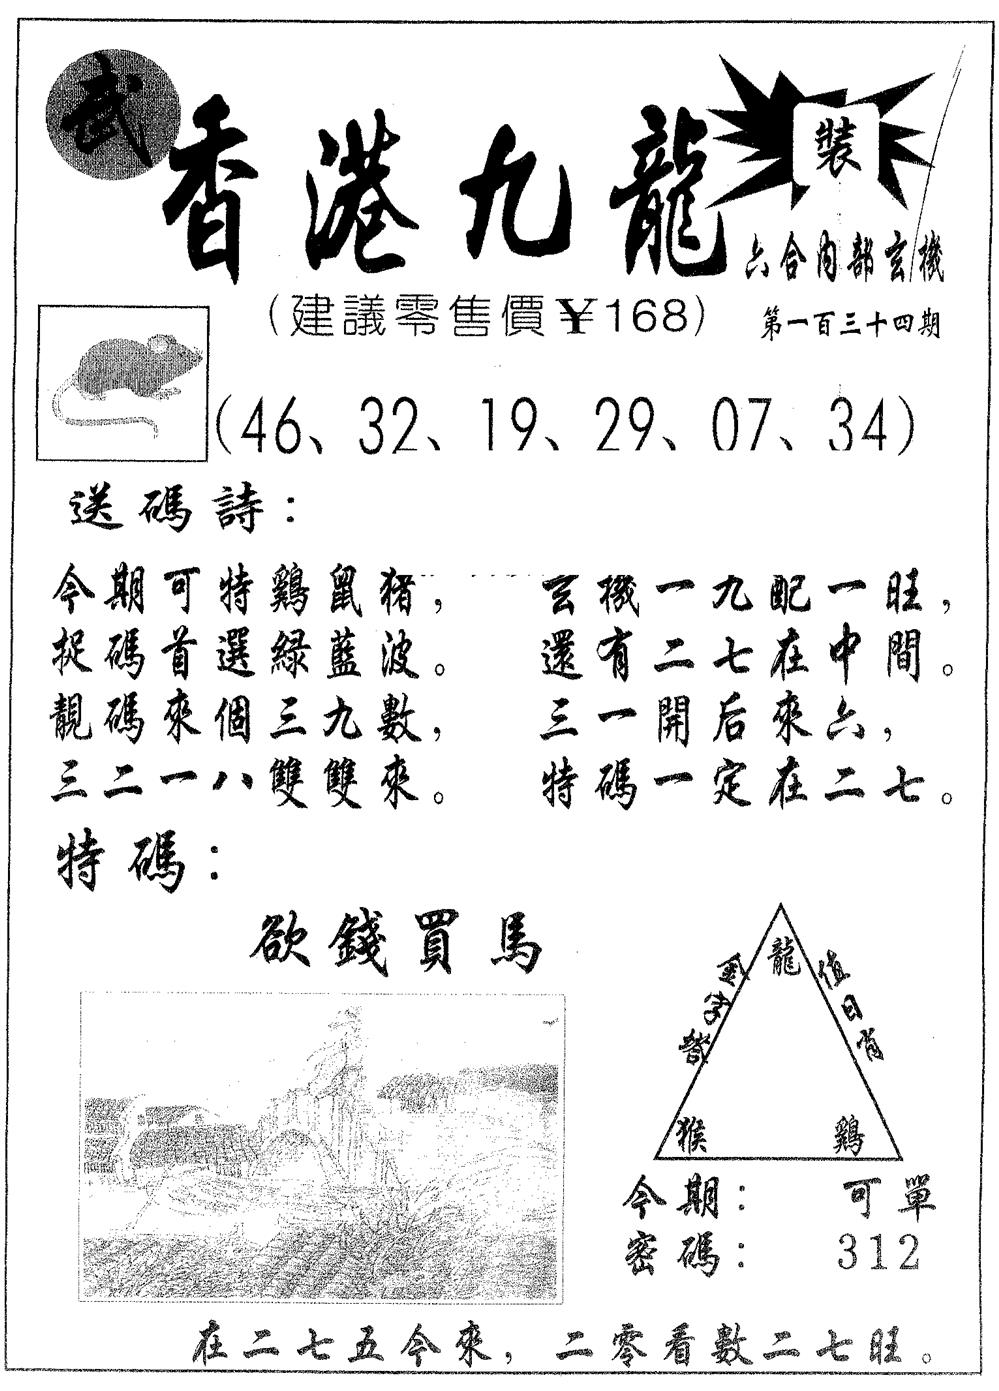 武
香港九龍
裝
六合內部玄機
(建議零售價¥168)
第一百三十四期
(46、32、19、29、07、34)
送碼詩:
今期可特鷄鼠猪, 玄機一九配一旺,
捉碼首選綠藍波。 還有二七在中間。
靚碼來個三九數, 三一開后來六,
三二一八雙雙來。 特碼一定在二七。
特碼:
欲錢買馬
金字塔
龍
值日肖
猴 鷄
今期: 可單
密碼: 312
在二七五今來, 二零看數二七旺。